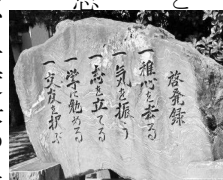 啓発録
一 稚心を去る
一 気を振う
一 志を立てる
一 学に勉める
一 交友を択ぶ